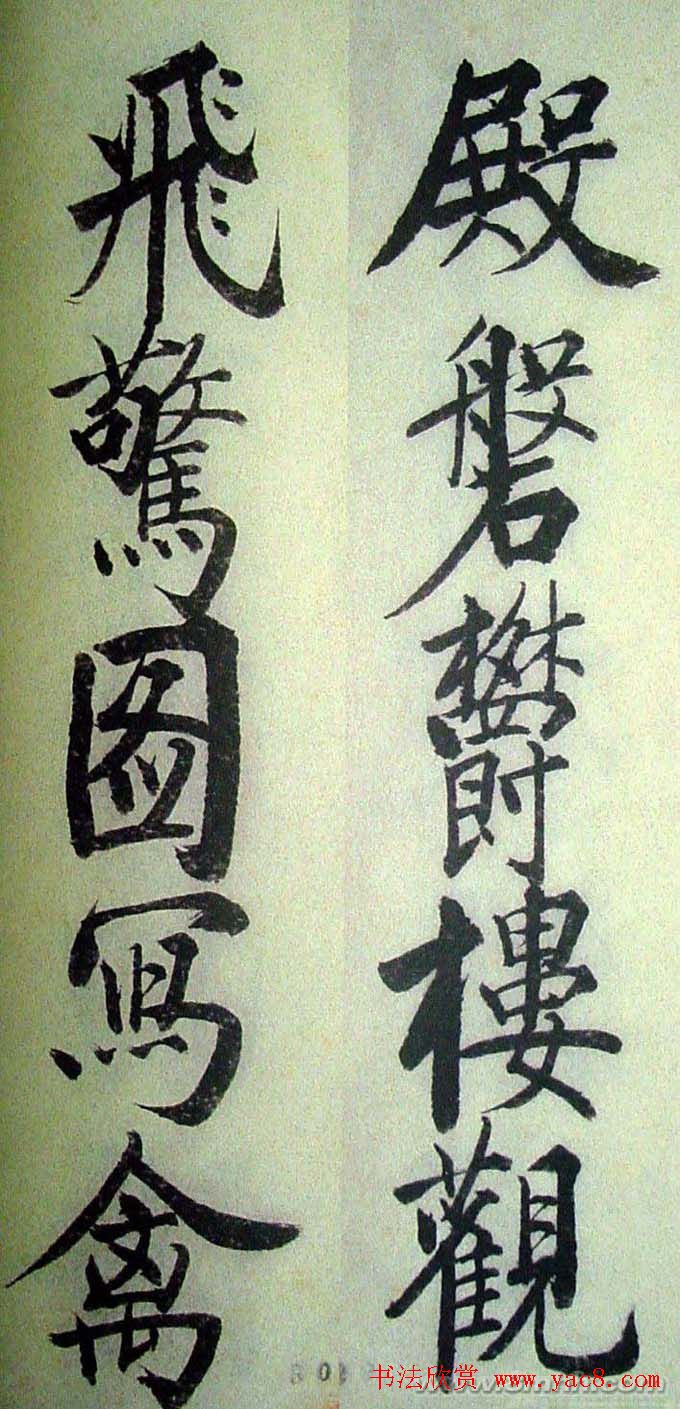 殿磐欝樓觀
飛驚圖寫禽
书法欣赏 www.yac8.com